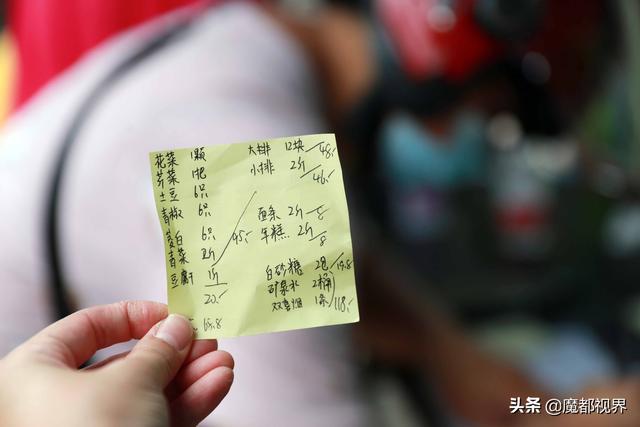 花菜 1颗
芹菜 1把
土豆 6只
青椒 6只
茭白 6只
青菜 2斤
豆腐干 1斤
95.-
20.-
大排 12块 48.-
小排 2斤 46.-
面条 2斤 8
年糕 2斤 8
白砂糖 2包 19.8
矿泉水 2桶
双喜烟 1条 118.-
头条 @魔都视界